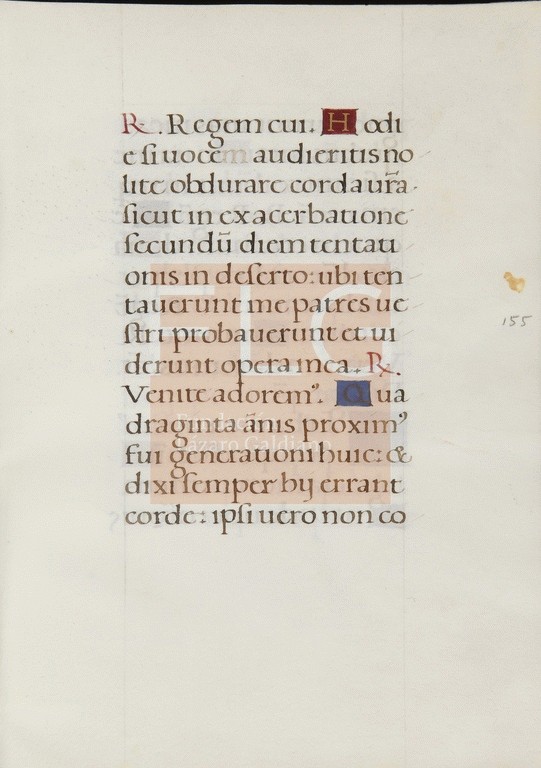 R. Regem cui. Hodi
e si uocem audieritis no
lite obdurare corda ur̃a.
sicut in exacerbatione
secundũ diem tentati
onis in deserto: ubi ten
tauerunt me patres ue
stri probauerunt et ui
derunt opera mea. R.
Venite adorem⁹. Qua
draginta ãnis proxim⁹
fui generationi huic: &
dixi semper hij errant
corde: ipsi uero non co
155
FLG
Fundación
Lázaro Galdiano